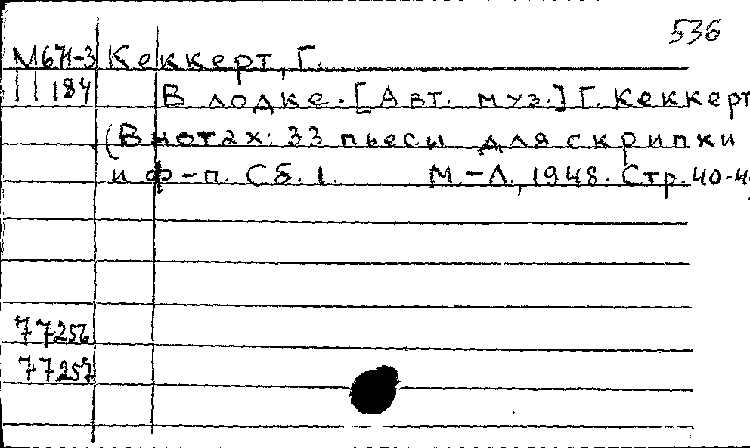 536
М671-3 Кеккерт, Г.
184 В лодке. [Авт. муз.] Г. Кеккерт
(В нотах: 33 пьесы для скрипки
и ф-п. Сб. 1. М.-Л., 1948. Стр. 40-4
77256
77257